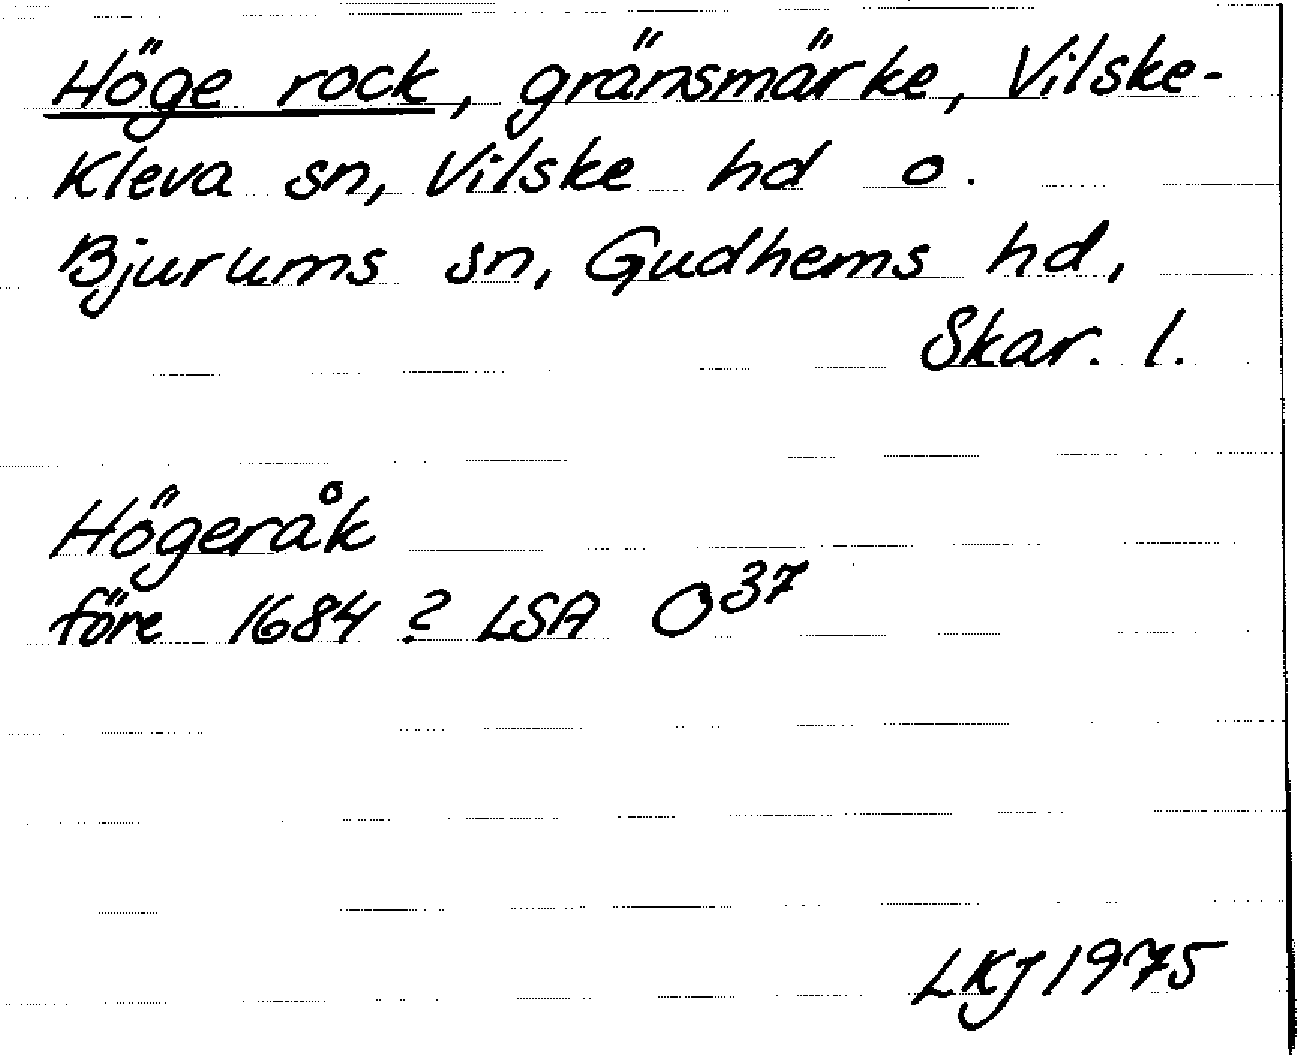 Höge rock, gränsmärke, Vilske-
Kleva sn, Vilske hd o.
Bjurums sn, Gudhems hd,
Skar. l.
Högeråk
före 1684? LSA O37
LKJ 1975